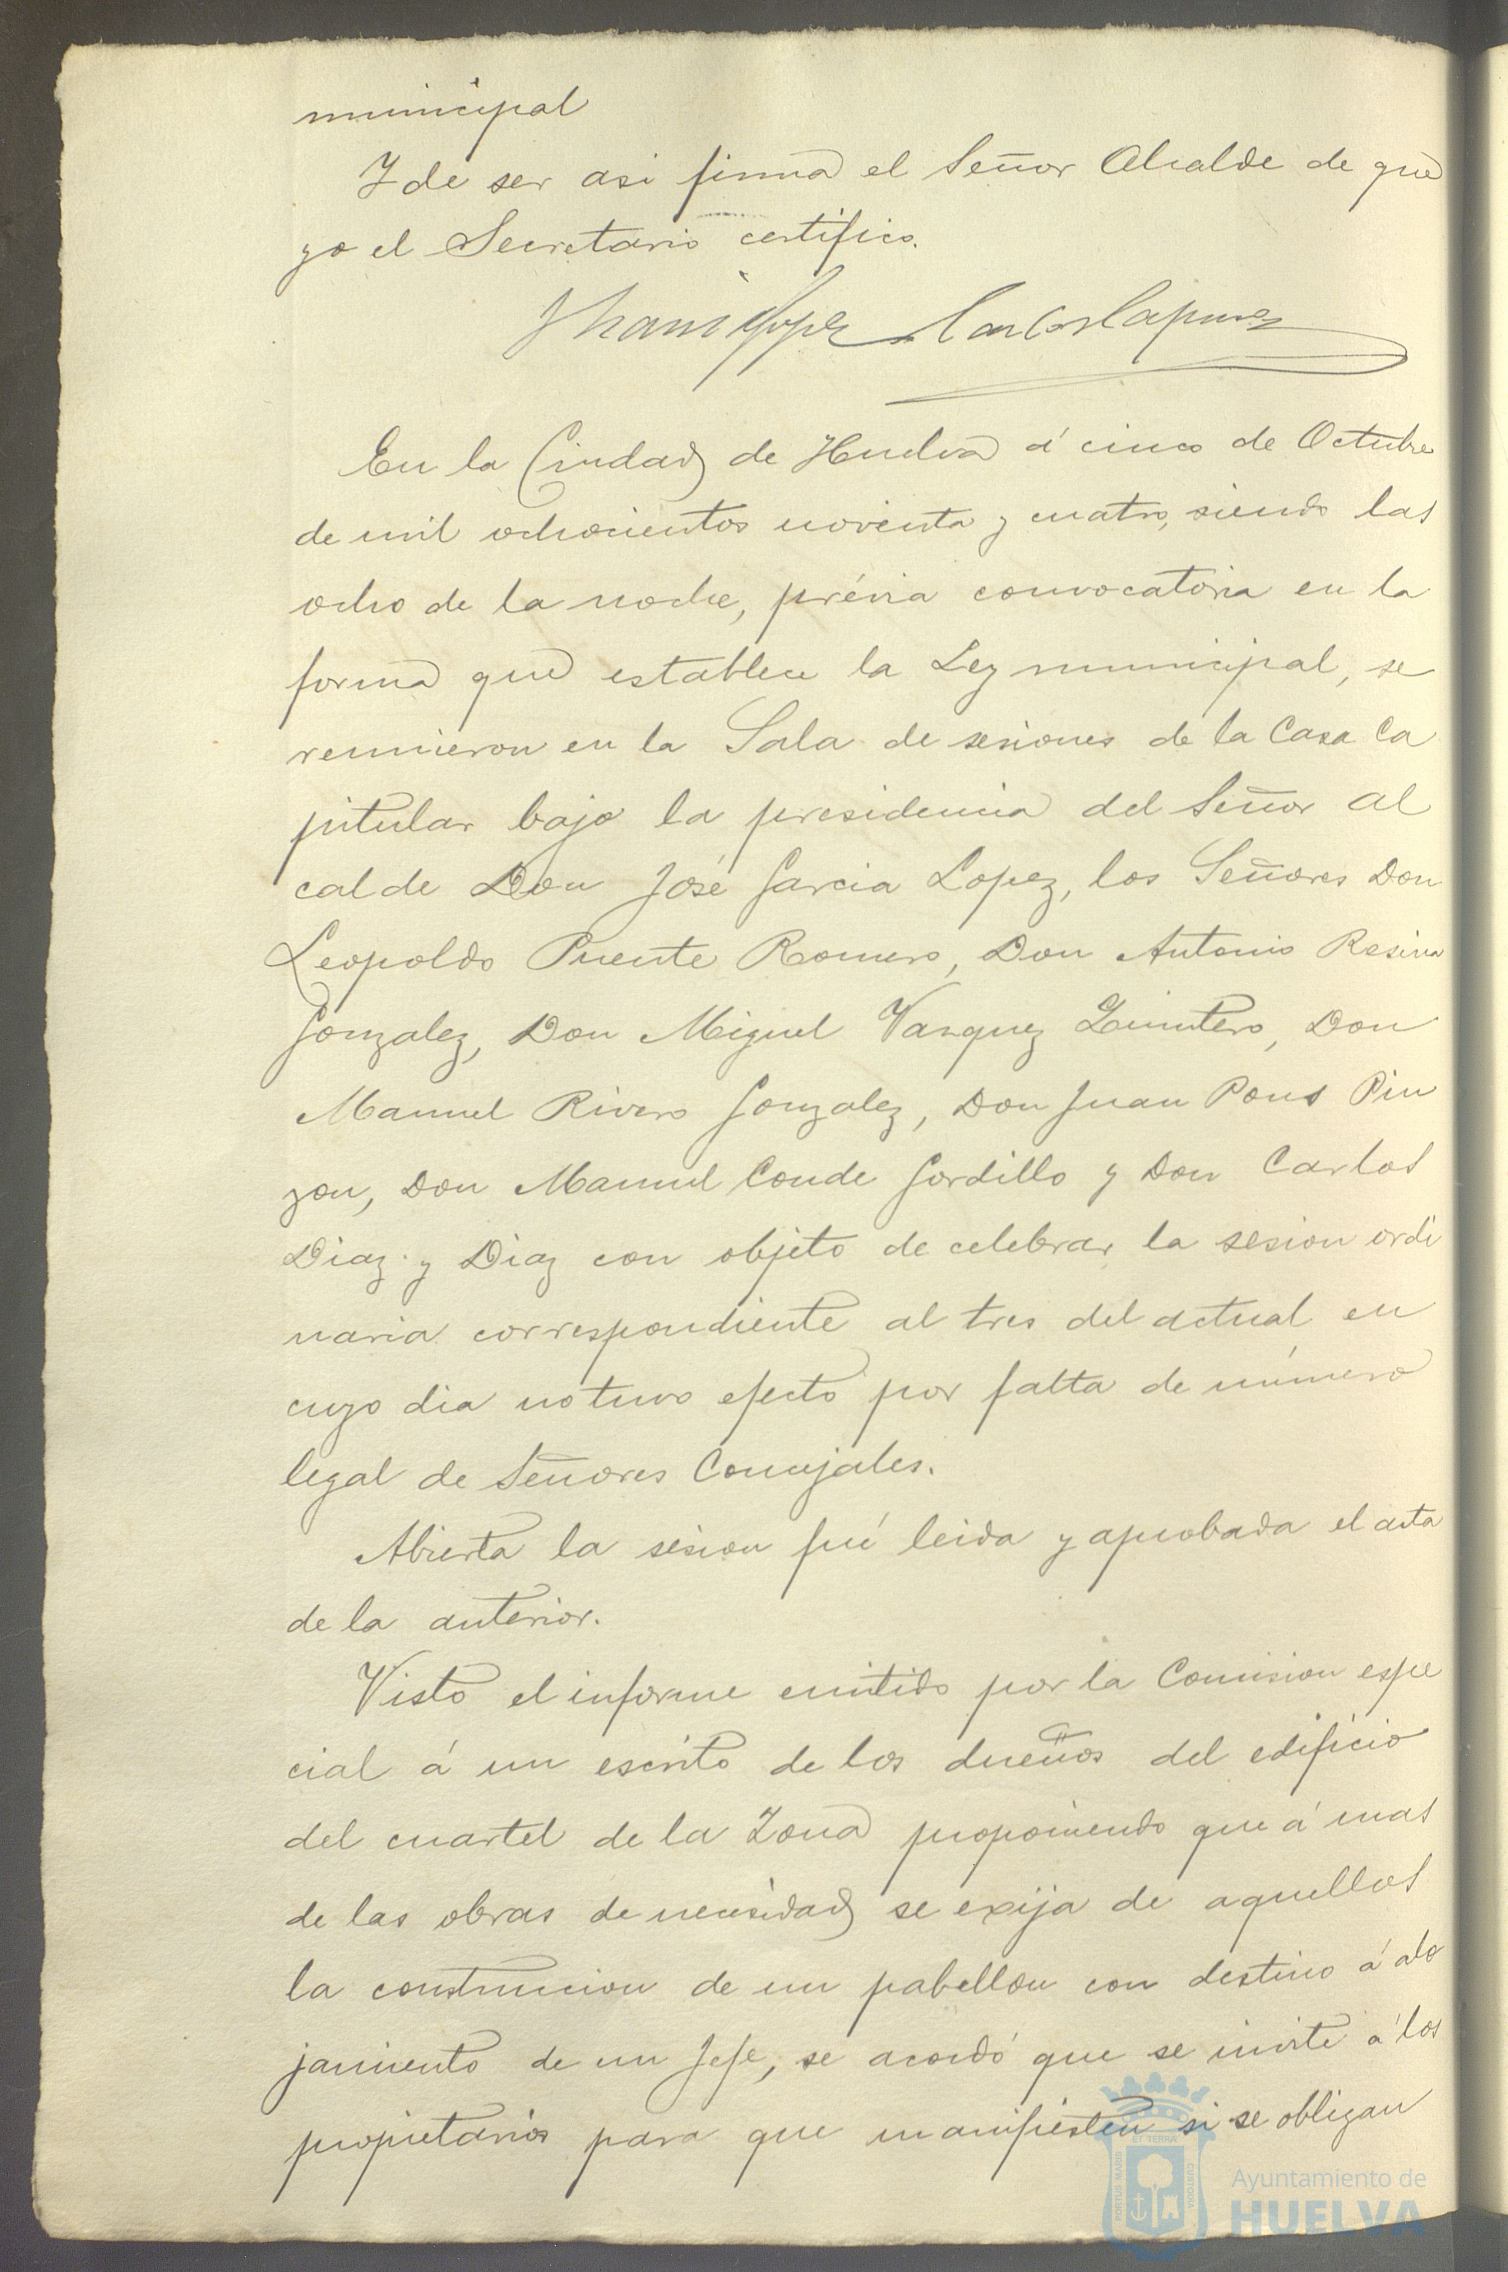 municipal
Y de ser asi firma el Señor Alcalde de que
yo el Secretario certifico.
En la Ciudad de Huelva á cinco de Octubre
de mil ochocientos noventa y cuatro, siendo las
ocho de la noche, prévia convocatoria en la
forma que establece la Ley municipal, se
reunieron en la Sala de sesiones de la Casa Ca
pitular bajo la presidencia del Señor Al
calde Don José Garcia Lopez, los Señores Don
Leopoldo Puente Romero, Don Antonio Resina
Gonzalez, Don Miguel Vazquez Quintero, Don
Manuel Rivero Gonzalez, Don Juan Pons Pin
zon, Don Manuel Conde Gordillo y Don Carlos
Diaz y Diaz con objeto de celebrar la sesion ordi
naria correspondiente al tres del actual en
cuyo dia no tuvo efecto por falta de número
legal de Señores Concejales.
Abierta la sesion fué leida y aprobada el acta
de la anterior.
Visto el informe emitido por la Comision espe
cial á un escrito de los dueños del edificio
del cuartel de la Zona proponiendo que á mas
de las obras de necesidad se exija de aquellos
la construccion de un pabellon con destino á alo
jamiento de un Jefe, se acordó que se invite á los
propietarios para que manifiesten si se obligan
Ayuntamiento de
HUELVA